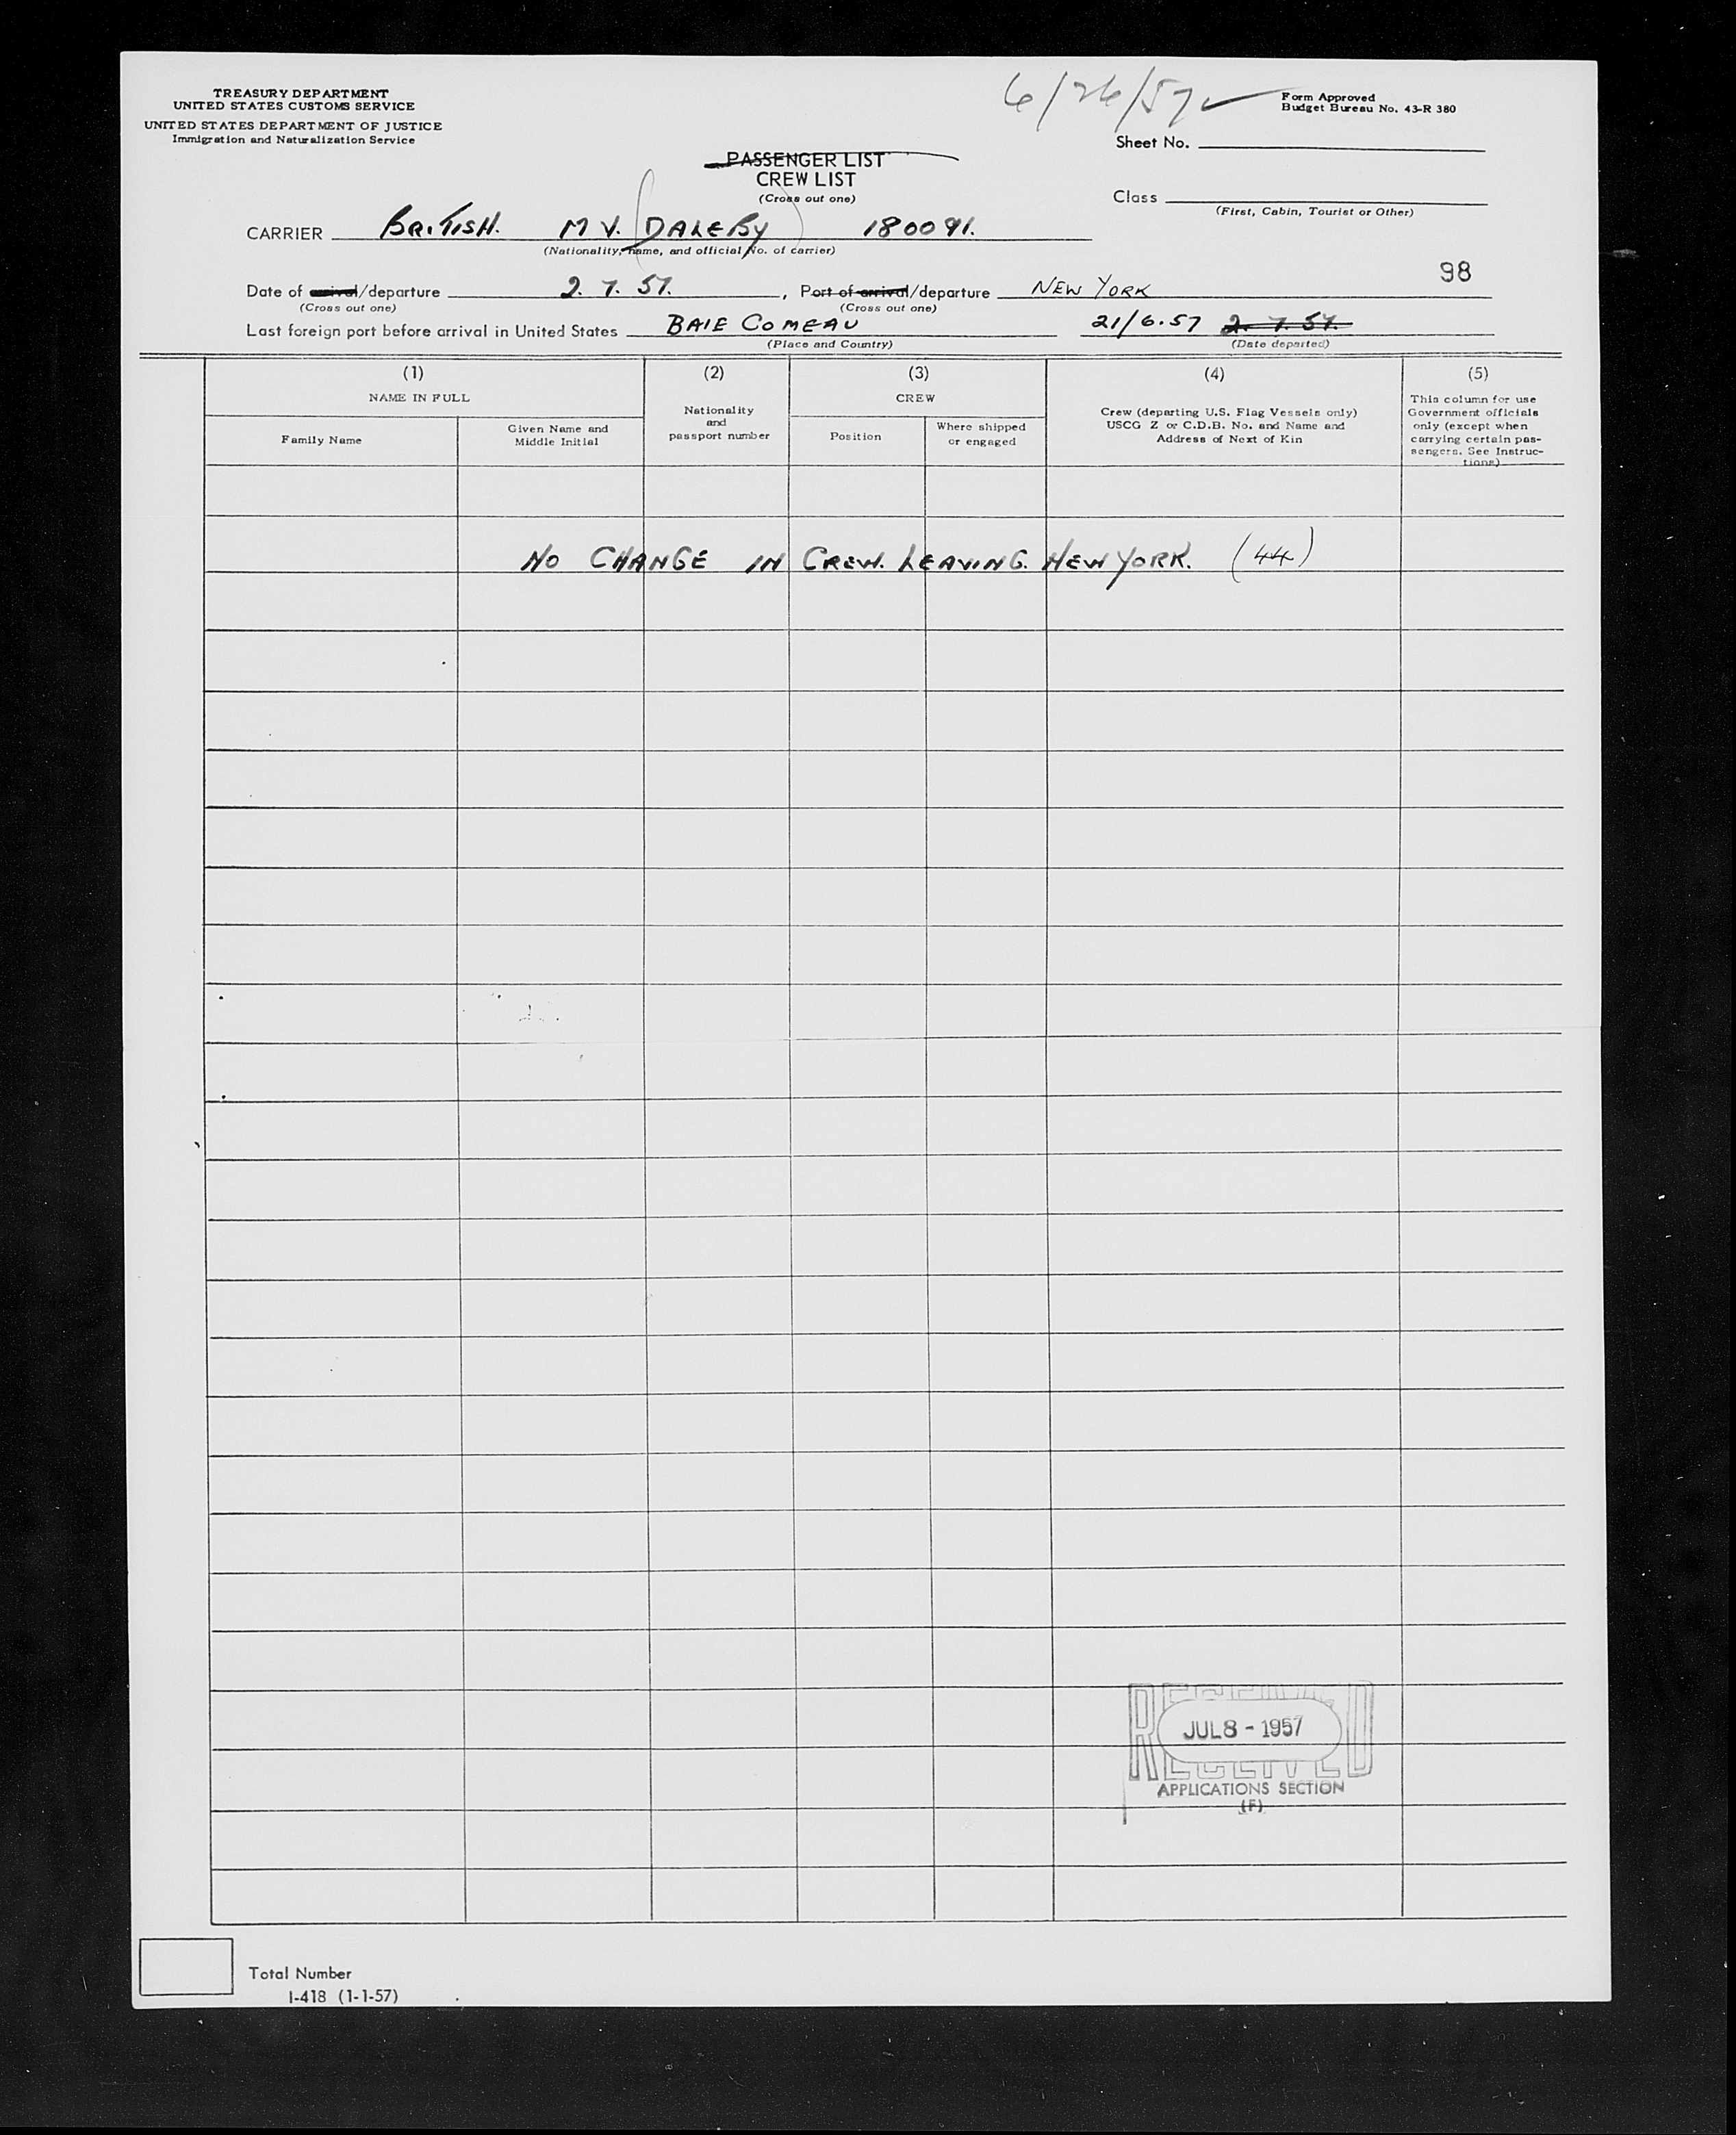 TREASURY DEPARTMENT
UNITED STATES CUSTOMS SERVICE
UNITED STATES DEPARTMENT OF JUSTICE
Immigration and Naturalization Service
6/26/57
Form Approved
Budget Bureau No. 43-R 380
Sheet No.
PASSENGER LIST
CREW LIST
(Cross out one)
Class
(First, Cabin, Tourist or Other)
CARRIER BRITISH. M V. DALEBY 180091.
(Nationality, name, and official No. of carrier)
98
Date of arrival/departure 2. 7. 57. , Port of arrival/departure NEW YORK
(Cross out one) (Cross out one)
Last foreign port before arrival in United States BAIE COMEAU 21/6.57 2. 7. 57.
(Place and Country) (Date departed)
(1) (2) (3) (4) (5)
NAME IN FULL
Family Name
Given Name and
Middle Initial
Nationality
and
passport number
CREW
Position
Where shipped
or engaged
Crew (departing U.S. Flag Vessels only)
USCG Z or C.D.B. No. and Name and
Address of Next of Kin
This column for use
Government officials
only (except when
carrying certain pas-
sengers. See Instruc-
tions)
NO CHANGE IN CREW. LEAVING. NEW YORK. (44)
RECEIVED
JUL 8 - 1957
RECEIVED
APPLICATIONS SECTION
(F)
Total Number
I-418 (1-1-57)